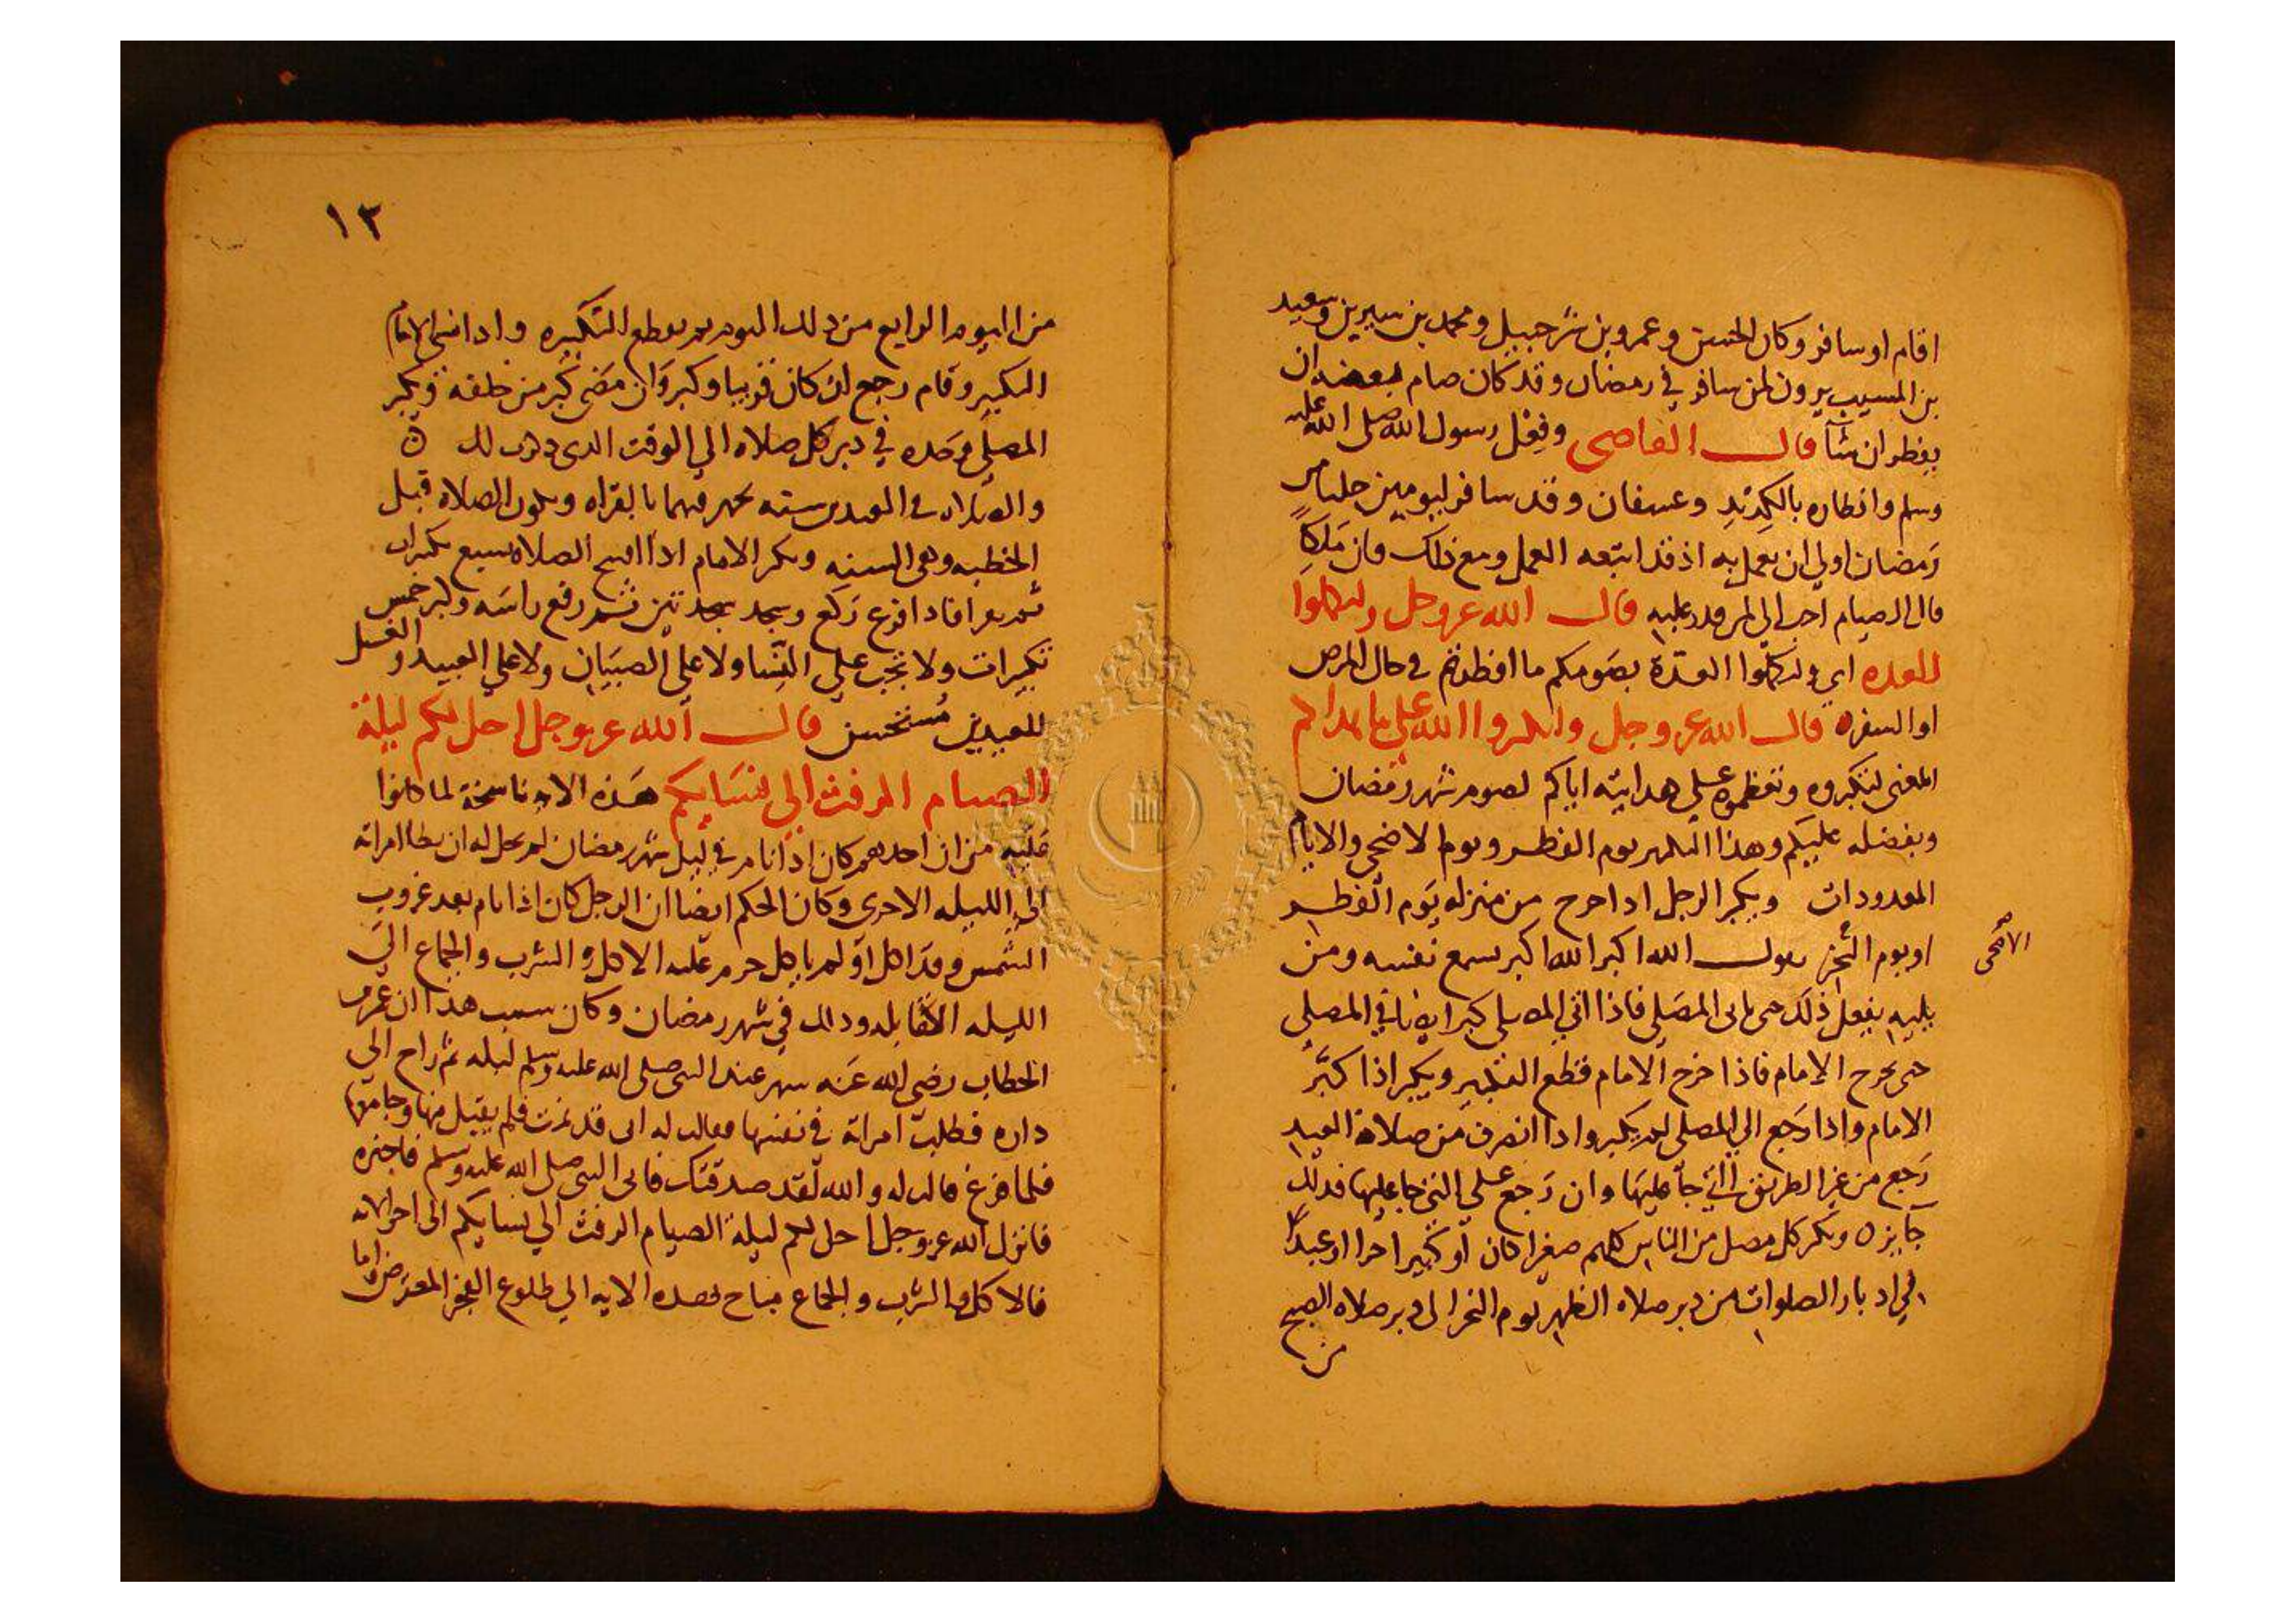 اقام او سافر وكان الحسن وعمرو بن شرحبيل ومحمد بن سيرين وسعيد
بن المسيب يرون لمن سافر في رمضان وقد كان صام بعضه ان
يفطر ان شآ قال القاضى وفعل رسول الله صلى الله عليه
وسلم وافطاره بالكديد وعسفان وقد سافر ليومين من
رمضان اولي ان يعمل به اذ قد اتبعه العمل ومع ذلك فان ملكا
قال الصيام احب الى لمن قدر عليه قال الله عز وجل ولتكملوا
العده اي ولتكملوا العدة بصومكم ما افطرتم في حال المرض
او السفر قال الله عز وجل ولتكبروا الله على ما هداكم
المعنى لتكبروه وتعظموه على هدايته اياكم لصوم شهر رمضان
وبفضله عليكم وهذا التكبير يوم الفطر ويوم الاضحى والايام
المعدودات ويكبر الرجل اذا خرج من منزله يوم الفطر
او يوم النحر يقول الله اكبر الله اكبر يسمع نفسه ومن
الاضحى
يليه يفعل ذلك حتى ياتي المصلي فاذا اتي المصلي كبر ايضا في المصلي
حتى يخرج الامام فاذا خرج الامام قطع التكبير ويكبر اذا كبَّر
الامام واذا رجع الي المصلى لم يكبر واذا انصرف من صلاة العيد
رجع من غير الطريق التي جآ عليها وان رجع علي التي جا عليها فذلك
جآيز ٥ ويكبر كل مصل من الناس كلهم صغيرا كان او كبيرا حرا او عبدا
في ادبار الصلوات من دبر صلاه الظهر يوم النحر الى دبر صلاه الصبح
من
١٣
من اليوم الرابع من ذلك اليوم ثم يقطع التكبيره واذا نسي الامام
التكبير وقام رجع ان كان قريبا وكبر وان مضى كبر من خلفه ويكبر
المصلي وحده في دبر كل صلاه الي الوقت الذي ذكرت لك ٥
والصلاه في العيدين سنه يجهر فيهما بالقراه وتكون الصلاه قبل
الخطبه وهي السنه ويكبر الامام اذا افتتح الصلاه سبع تكبيرات
ثم يقرا فاذا فرغ ركع وسجد سجدتين ثم رفع راسه وكبر خمس
تكبيرات ولا تجب علي النسا ولا على الصبيان ولا علي العبيد والغسل
للعيدين مستحسن قال الله عز وجل احل لكم ليلة
الصيام الرفث الى نسايكم هذه الايه ناسخة لما كانوا
عليه من ان احدهم كان اذا نام في ليل شهر رمضان لم يحل له ان يطا امراته
الي الليله الاخرى وكان الحكم ايضا ان الرجل كان اذا نام بعد غروب
الشمس وقد اكل او لم ياكل حرم عليه الاكل والشرب والجماع الى
الليله القابله وذلك في شهر رمضان وكان سبب هذا ان عمر بن
الخطاب رضي الله عنه سهر عند النبي صلى الله عليه وسلم ليله ثم راح الي
داره فطلب امراته في نفسها فقالت له انى قد نمت فلم يقبل منها وجامعها
فلما فرغ قالت له والله لقد صدقتك فاتى النبي صلى الله عليه وسلم فاخبره
فانزل الله عز وجل احل لكم ليلة الصيام الرفث الي نسايكم الى اخر الايه
فالاكل والشرب والجماع مباح بهذه الايه الي طلوع الفجر المعترض واما